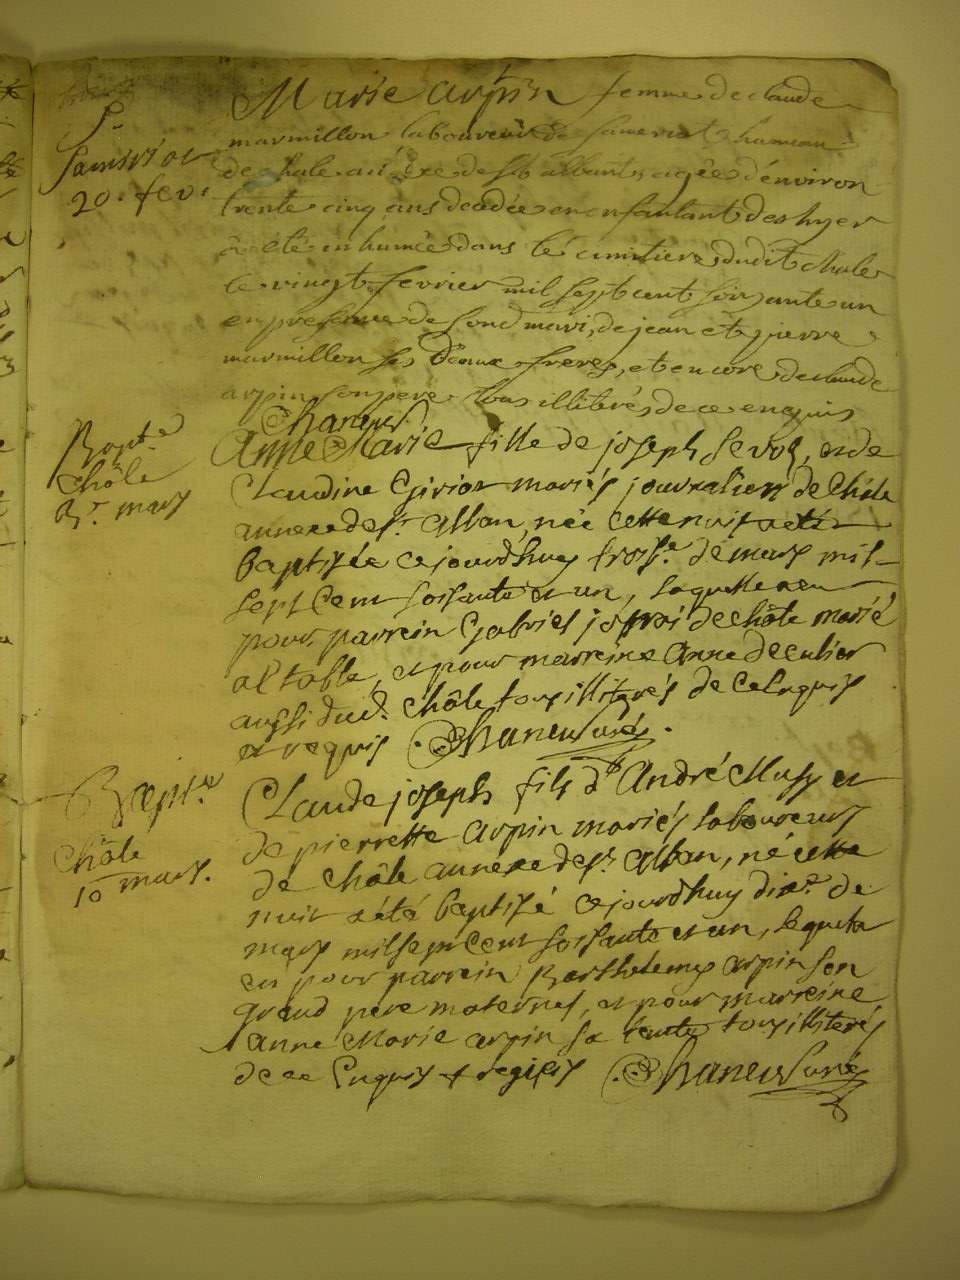 Marie arpin femme de claude
marmillon laboureur de hameau
de chale de st alban, agée d'environ
trente cinq ans decedée en enfantant des hyer
à eté inhumée dans le cimitiere dudit chale
le vingt fevrier mil sept cent soixante un
en presence de sond mari, de jean et pierre
marmillon ses beaux freres, et encore de claude
arpin son pere tous illiterés de ce enquis
20. fev.
Bapt.e
Châle
3.e mars
Anne Marie fille de joseph Sevoz, et de
Claudine Girion mariés journaliers de Châle
annexe de st. Alban, née cette nuit a eté
baptisée ce jourd'huy trois.e de mars mil
sept cent soisante et un, laquelle a eu
pour parrein Gabriel de Châle marié
et pour marreine Anne
aussi dud. Châle tous illiterés de ce enquis
et requis Chaneu curé.
Bapt.e
Châle
10 mars.
Claude joseph fils d'André Mussy et
de pierrette Arpin mariés laboureurs
de Châle annexe de st. Alban, né cette
nuit a été baptisé ce jourd'huy dix.e de
mars mil sept cent soisante et un, lequel a
eu pour parrein Barthelemy arpin son
grand pere maternel, et pour marreine
Anne Marie arpin sa tante tous illiterés
de ce enquis et requis Chaneu curé